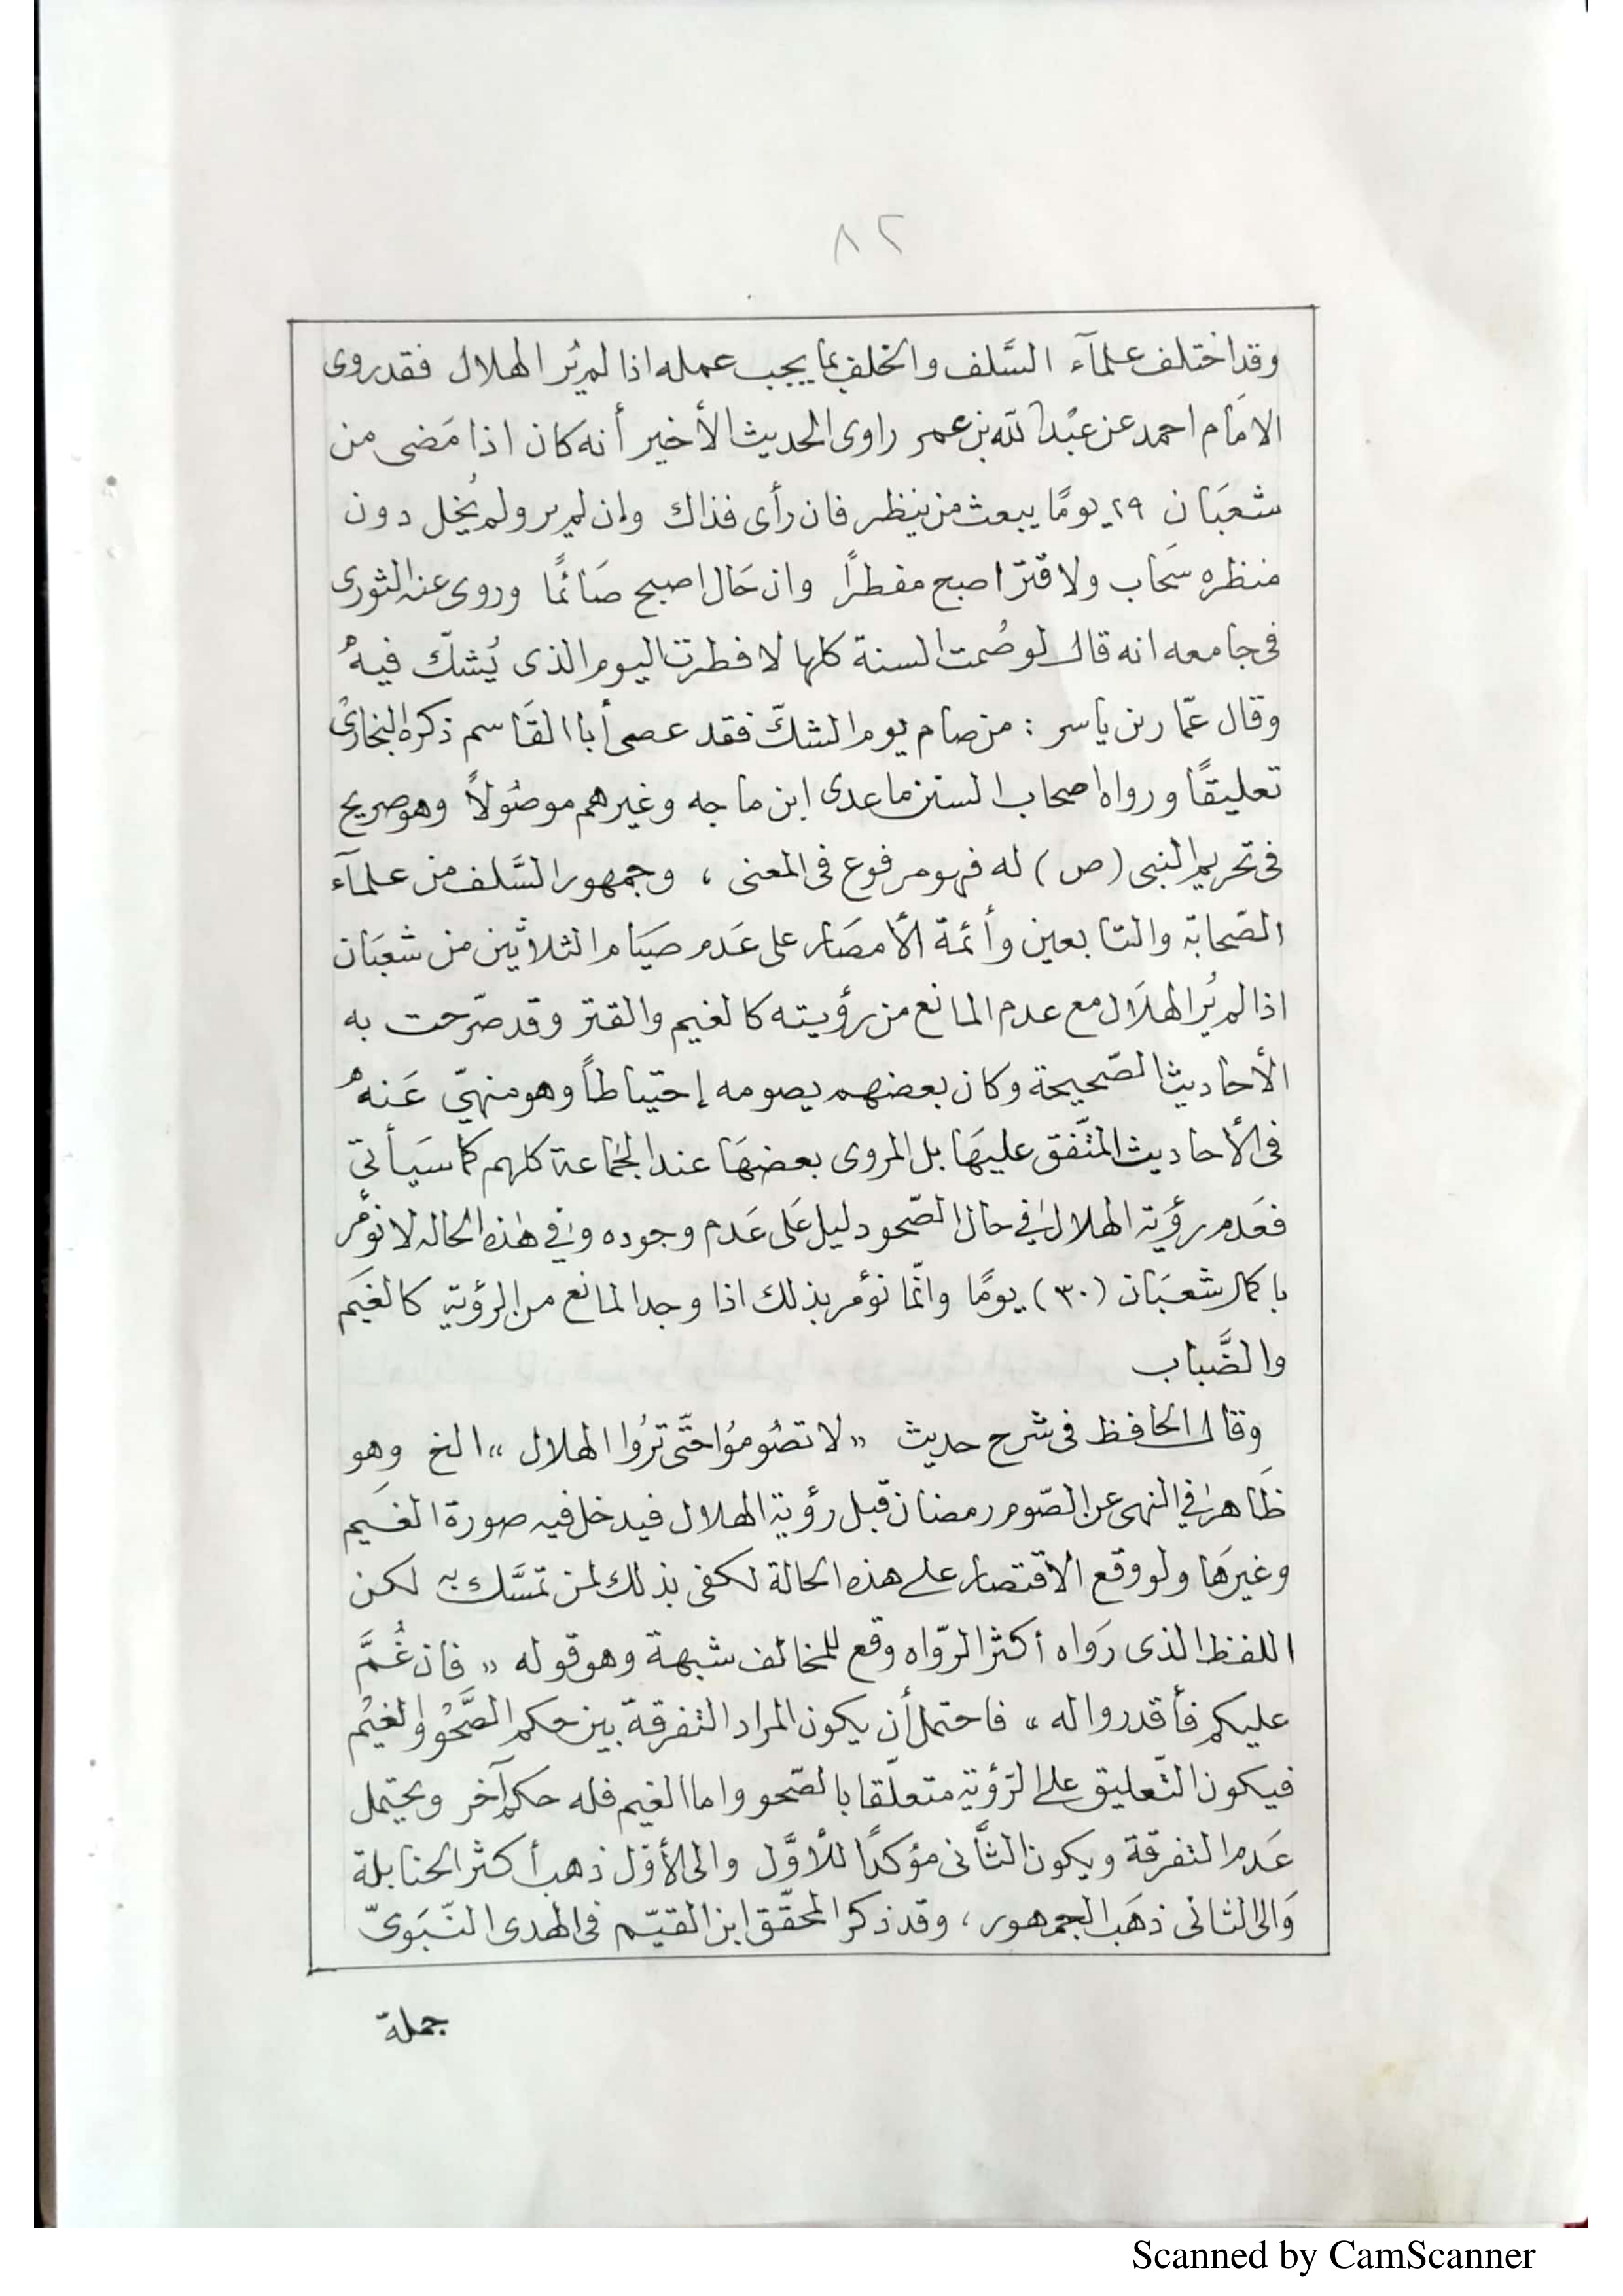 ٨٢
وقد اختلف علمآء السَّلف والخلف بما يجب عمله اذا لم يُر الهلال فقد روى
الامَام احمد عن عبْد الله بن عمر راوى الحديث الأخير أنه كان اذا مَضى من
شعبَان ٢٩ يومًا يبعث من ينظر فان رأى فذاك وإن لم ير ولم يُحل دون
منظره سَحاب ولا قتر اصبح مفطرًا وان حَال اصبح صَائمًا وروى عنه الثورى
فى جامعه انه قال لو صُمت السنة كلها لافطرت اليوم الذى يُشكّ فيهُ
وقال عمّار بن ياسر : من صام يوم الشكّ فقد عصى أبا القَاسم ذكره البخارىُ
تعليقًا ورواه اصحاب السنن ماعدى ابن ماجه وغيرهم موصُولاً وهو صريح
فى تحريم النبى (ص) له فهو مرفوع فى المعنى ، وجمهور السَّلف من علمآء
الصّحابة والتابعين وأئمة الأمصَار على عَدم صيَام الثلاثين من شعبَان
اذا لم يُر الهلَال مع عدم المانع من رؤيته كالغيم والقتر وقد صرّحت به
الأحاديث الصّحيحة وكان بعضهم يصومه إحتياطاً وهو منهيّ عَنهُ
فى الأحاديث المتّفق عليهَا بل المروى بعضهَا عند الجَماعة كلهم كما سيَأتى
فعَدم رؤية الهلال في حال الصّحو دليل عَلى عَدم وجوده وفي هٰذه الحاله لا نؤمر
باكمال شعبَان (٣٠) يومًا وانّما نؤمر بذلك اذا وجد المانع من الرؤية كالغيَم
والضَّباب
وقال الحافظ فى شرح حديث « لا تصُومُوا حتّى ترُوا الهلال » الخ وهو
ظَاهر في النهى عن الصّوم رمضان قبل رؤية الهلال فيدخل فيه صورة الغَيم
وغيرهَا ولو وقع الاقتصار على هذه الحالة لكفى بذلك لمن تمسَّك به لكن
اللفظ الذى رَواه أكثر الرّواه وقع للمخالف شبهة وهو قوله « فان غُمَّ
عليكم فأقدروا له » فاحتمل أن يكون المراد التفرقة بين حكم الصَّحْو والغيْم
فيكون التّعليق على الرّؤية متعلّقا بالصّحو واما الغيم فله حكم آخر ويحتمل
عَدم التفرقة ويكون الثَّانى مؤكدًا للأوَّل والى الأوّل ذهب أكثر الحنابلة
وَالى الثانى ذهَب الجمهور ، وقد ذكر المحقّق ابن القيّم فى الهدى النّبَوىّ
جملة
Scanned by CamScanner